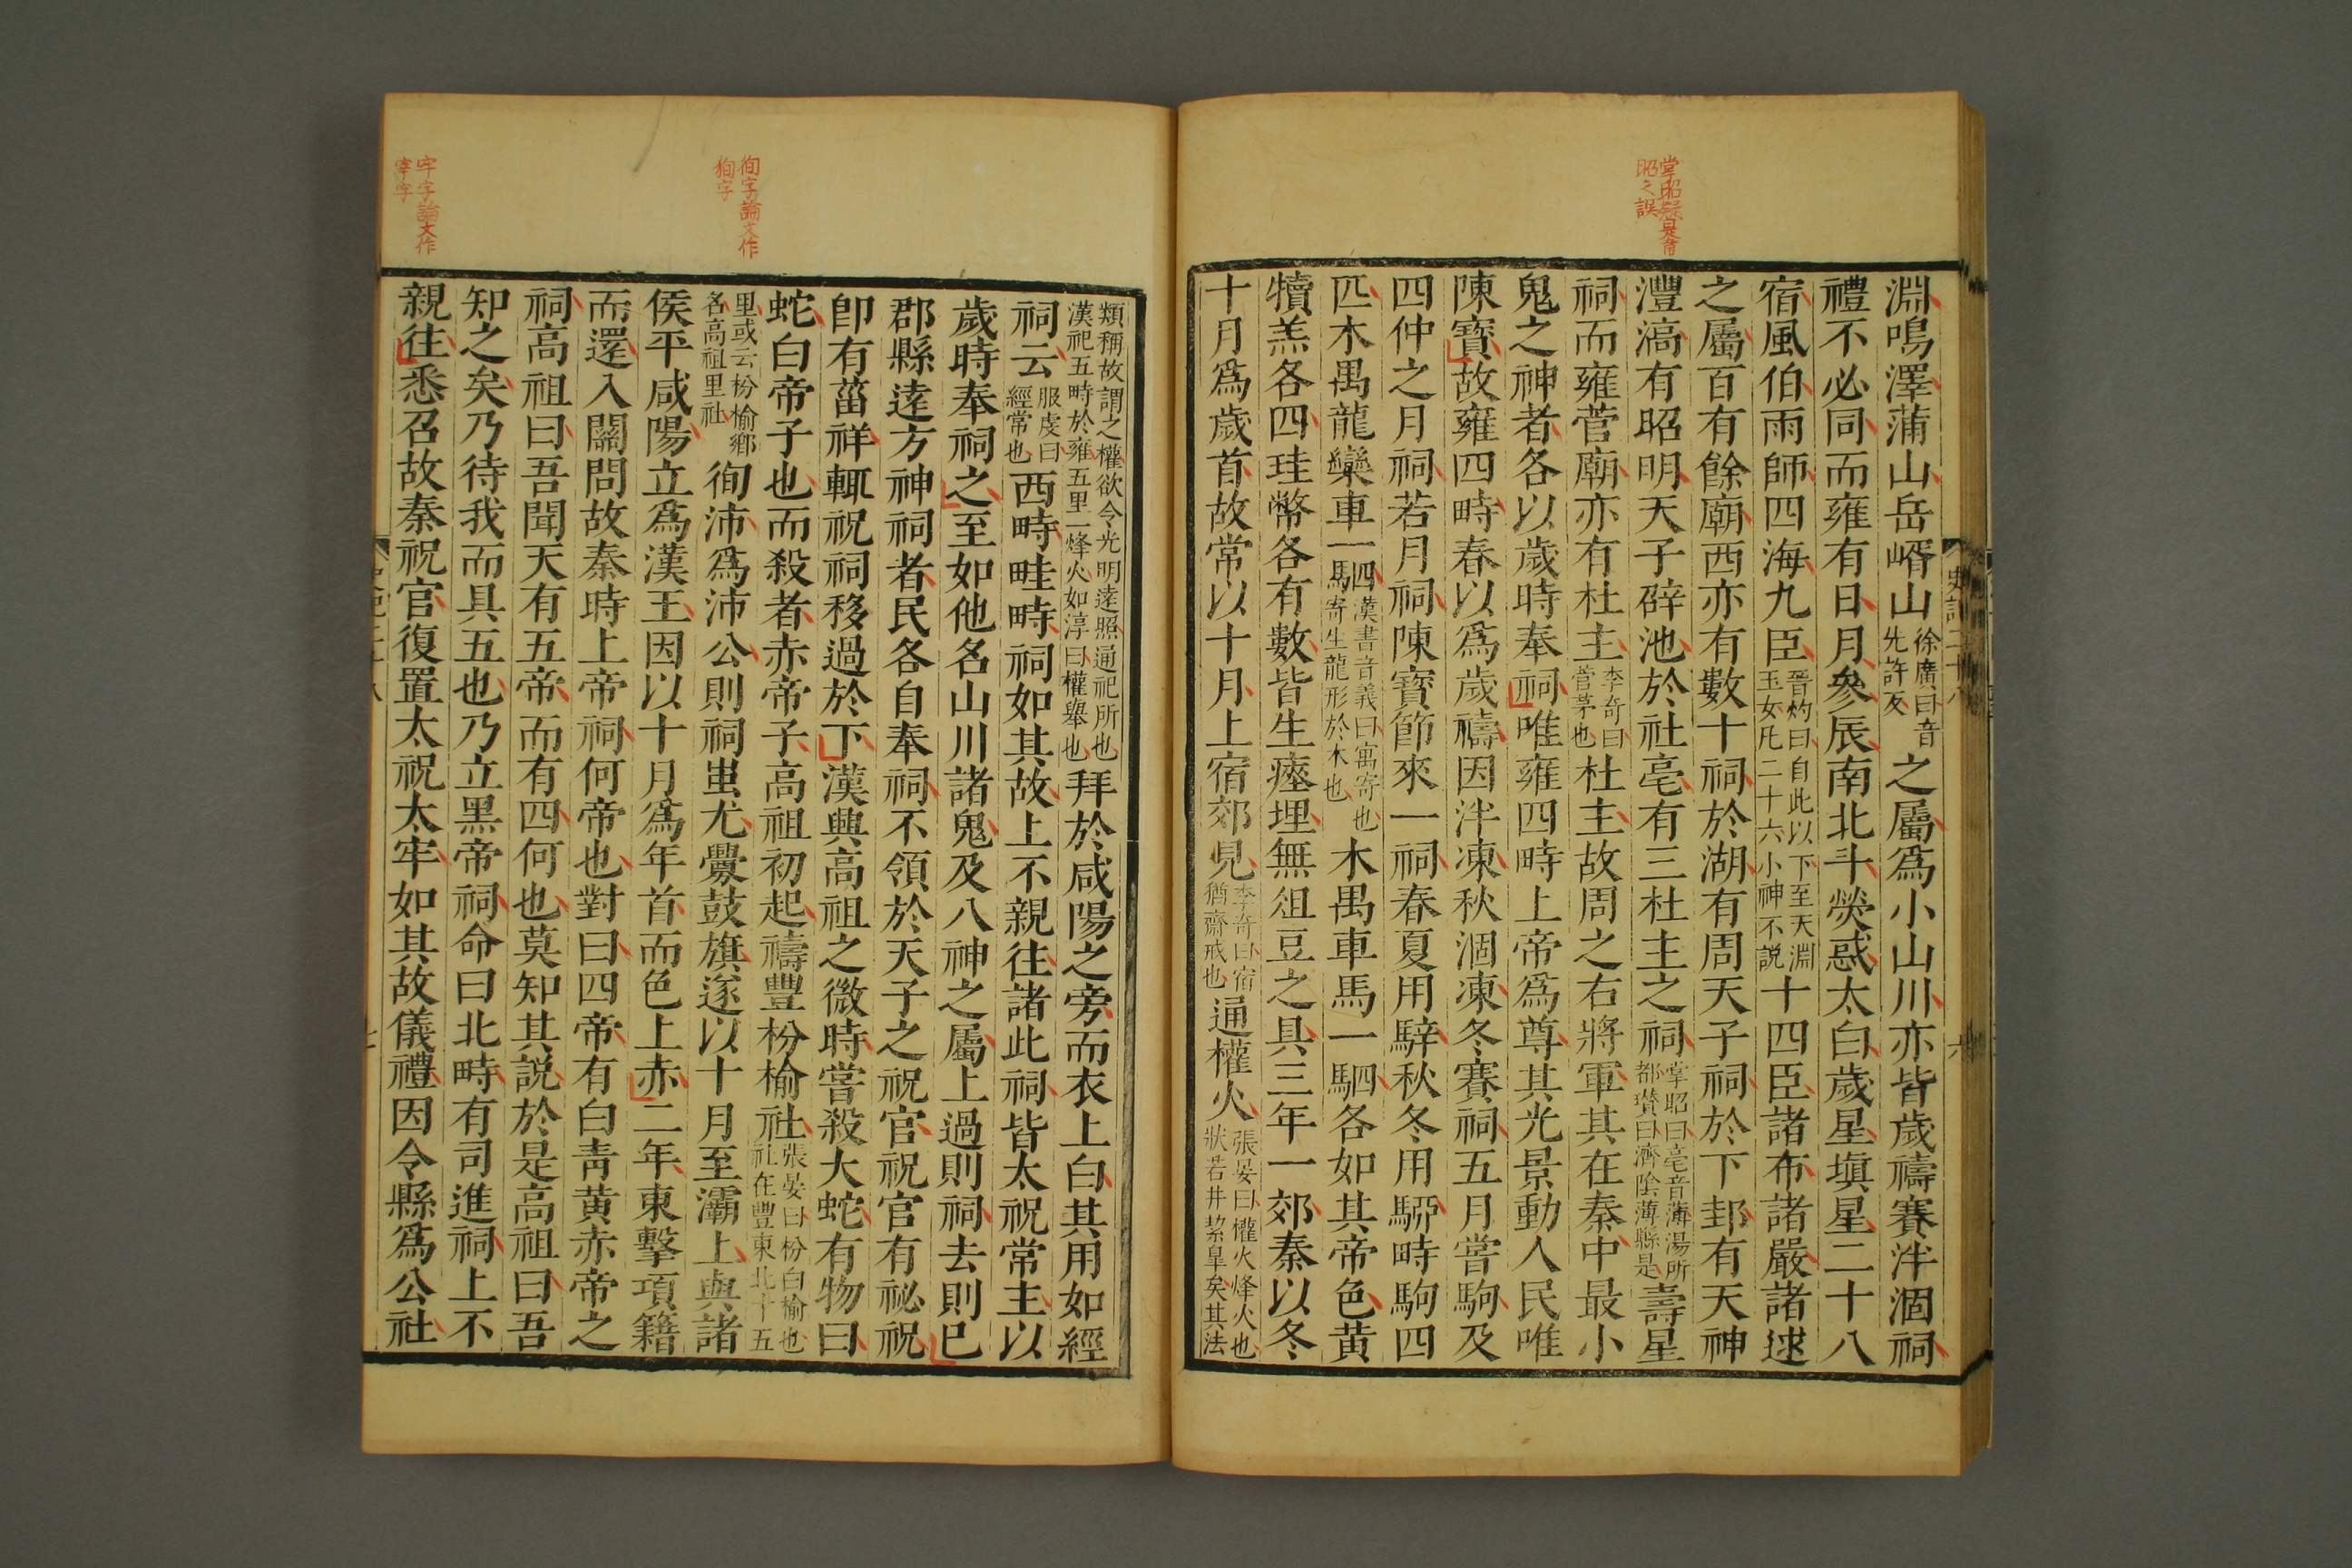 掌昭疑是韋
昭之誤
淵鳴澤蒲山岳㟭山徐廣曰音先許反之屬爲小山川亦皆歲禱賽泮涸祠
禮不必同而雍有日月參辰南北斗熒惑太白歲星塡星二十八
宿風伯雨師四海九臣晉灼曰自此以下至天淵玉女凡二十六小神不説十四臣諸布諸嚴諸逑
之屬百有餘廟西亦有數十祠於湖有周天子祠於下邽有天神
灃滈有昭明天子辟池於社亳有三杜主之祠掌昭曰亳音薄湯所都瓚曰濟陰薄縣是壽星
祠而雍菅廟亦有杜主李奇曰菅茅也杜主故周之右將軍其在秦中最小
鬼之神者各以歲時奉祠唯雍四畤上帝爲尊其光景動人民唯
陳寶故雍四畤春以爲歲禱因泮凍秋涸凍冬賽祠五月嘗駒及
四仲之月祠若月祠陳寶節來一祠春夏用騂秋冬用駵畤駒四
匹木禺龍欒車一駟漢書音義曰寓寄也寄生龍形於木也木禺車馬一駟各如其帝色黄
犢羔各四珪幣各有數皆生瘞埋無俎豆之具三年一郊秦以冬
十月爲歲首故常以十月上宿郊見李奇曰宿猶齋戒也通權火張晏曰權火烽火也狀若井挈臯矣其法
史記二十八
六
徇字論文作
狥字
牢字論文作
宰字
類稱故謂之權欲令光明遠照通祀所也漢祀五畤於雍五里一烽火如淳曰權舉也拜於咸陽之旁而衣上白其用如經
祠云服虔曰經常也西畤畦畤祠如其故上不親往諸此祠皆太祝常主以
歲時奉祠之至如他名山川諸鬼及八神之屬上過則祠去則已
郡縣遠方神祠者民各自奉祠不領於天子之祝官祝官有祕祝
卽有菑祥輒祝祠移過於下漢興高祖之微時嘗殺大蛇有物曰
蛇白帝子也而殺者赤帝子高祖初起禱豐枌榆社張晏曰枌白榆也社在豐東北十五
里或云枌榆鄉名高祖里社徇沛爲沛公則祠蚩尤釁鼓旗遂以十月至灞上與諸
侯平咸陽立爲漢王因以十月爲年首而色上赤二年東擊項籍
而還入關問故秦時上帝祠何帝也對曰四帝有白靑黄赤帝之
祠高祖曰吾聞天有五帝而有四何也莫知其説於是高祖曰吾
知之矣乃待我而具五也乃立黑帝祠命曰北畤有司進祠上不
親往悉召故秦祝官復置太祝太牢如其故儀禮因令縣爲公社